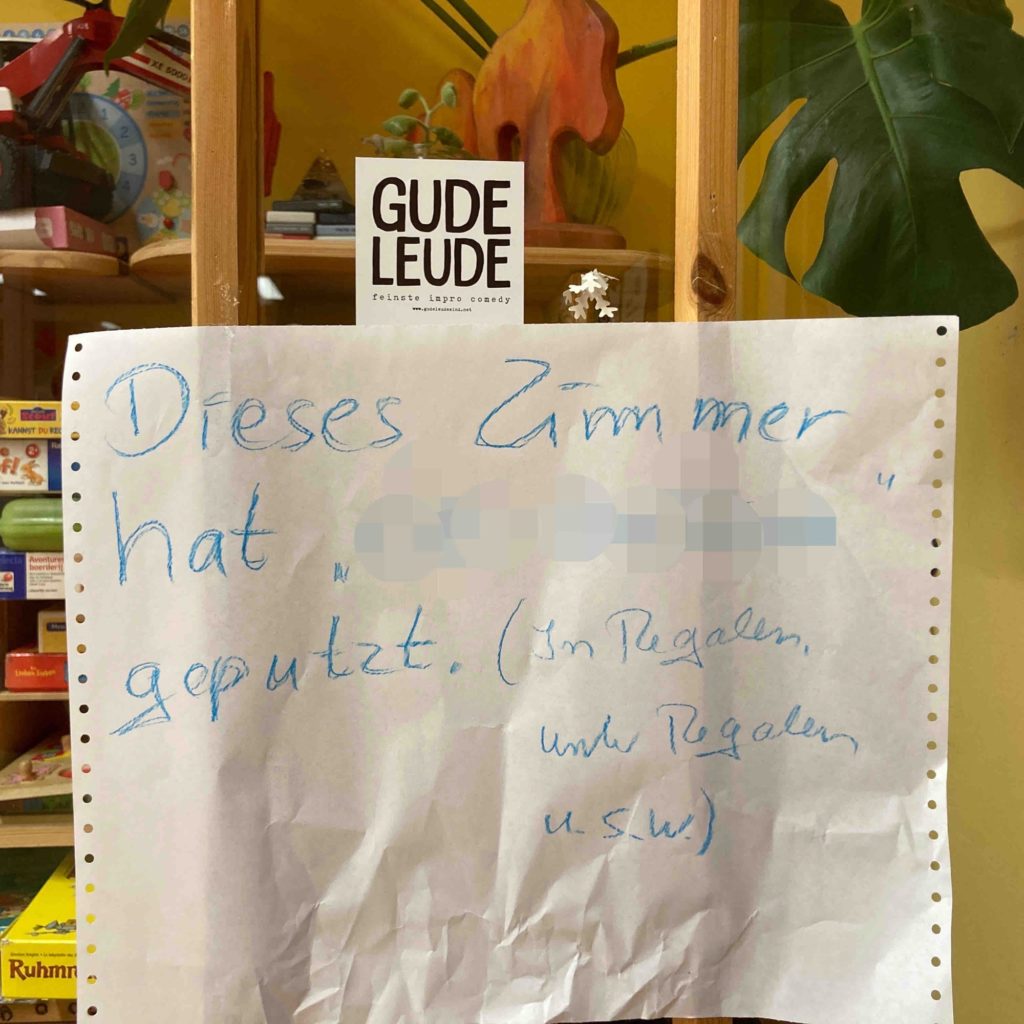 XE 5000
1
2
3
4
GUDE
LEUDE
feinste impro comedy
www.gudeleudesind.net
Dieses Zimmer
hat „ "
geputzt. (In Regalen,
unter Regalen
u.s.w.)
KANNST DU
Aventures
boerderij
Ruhm